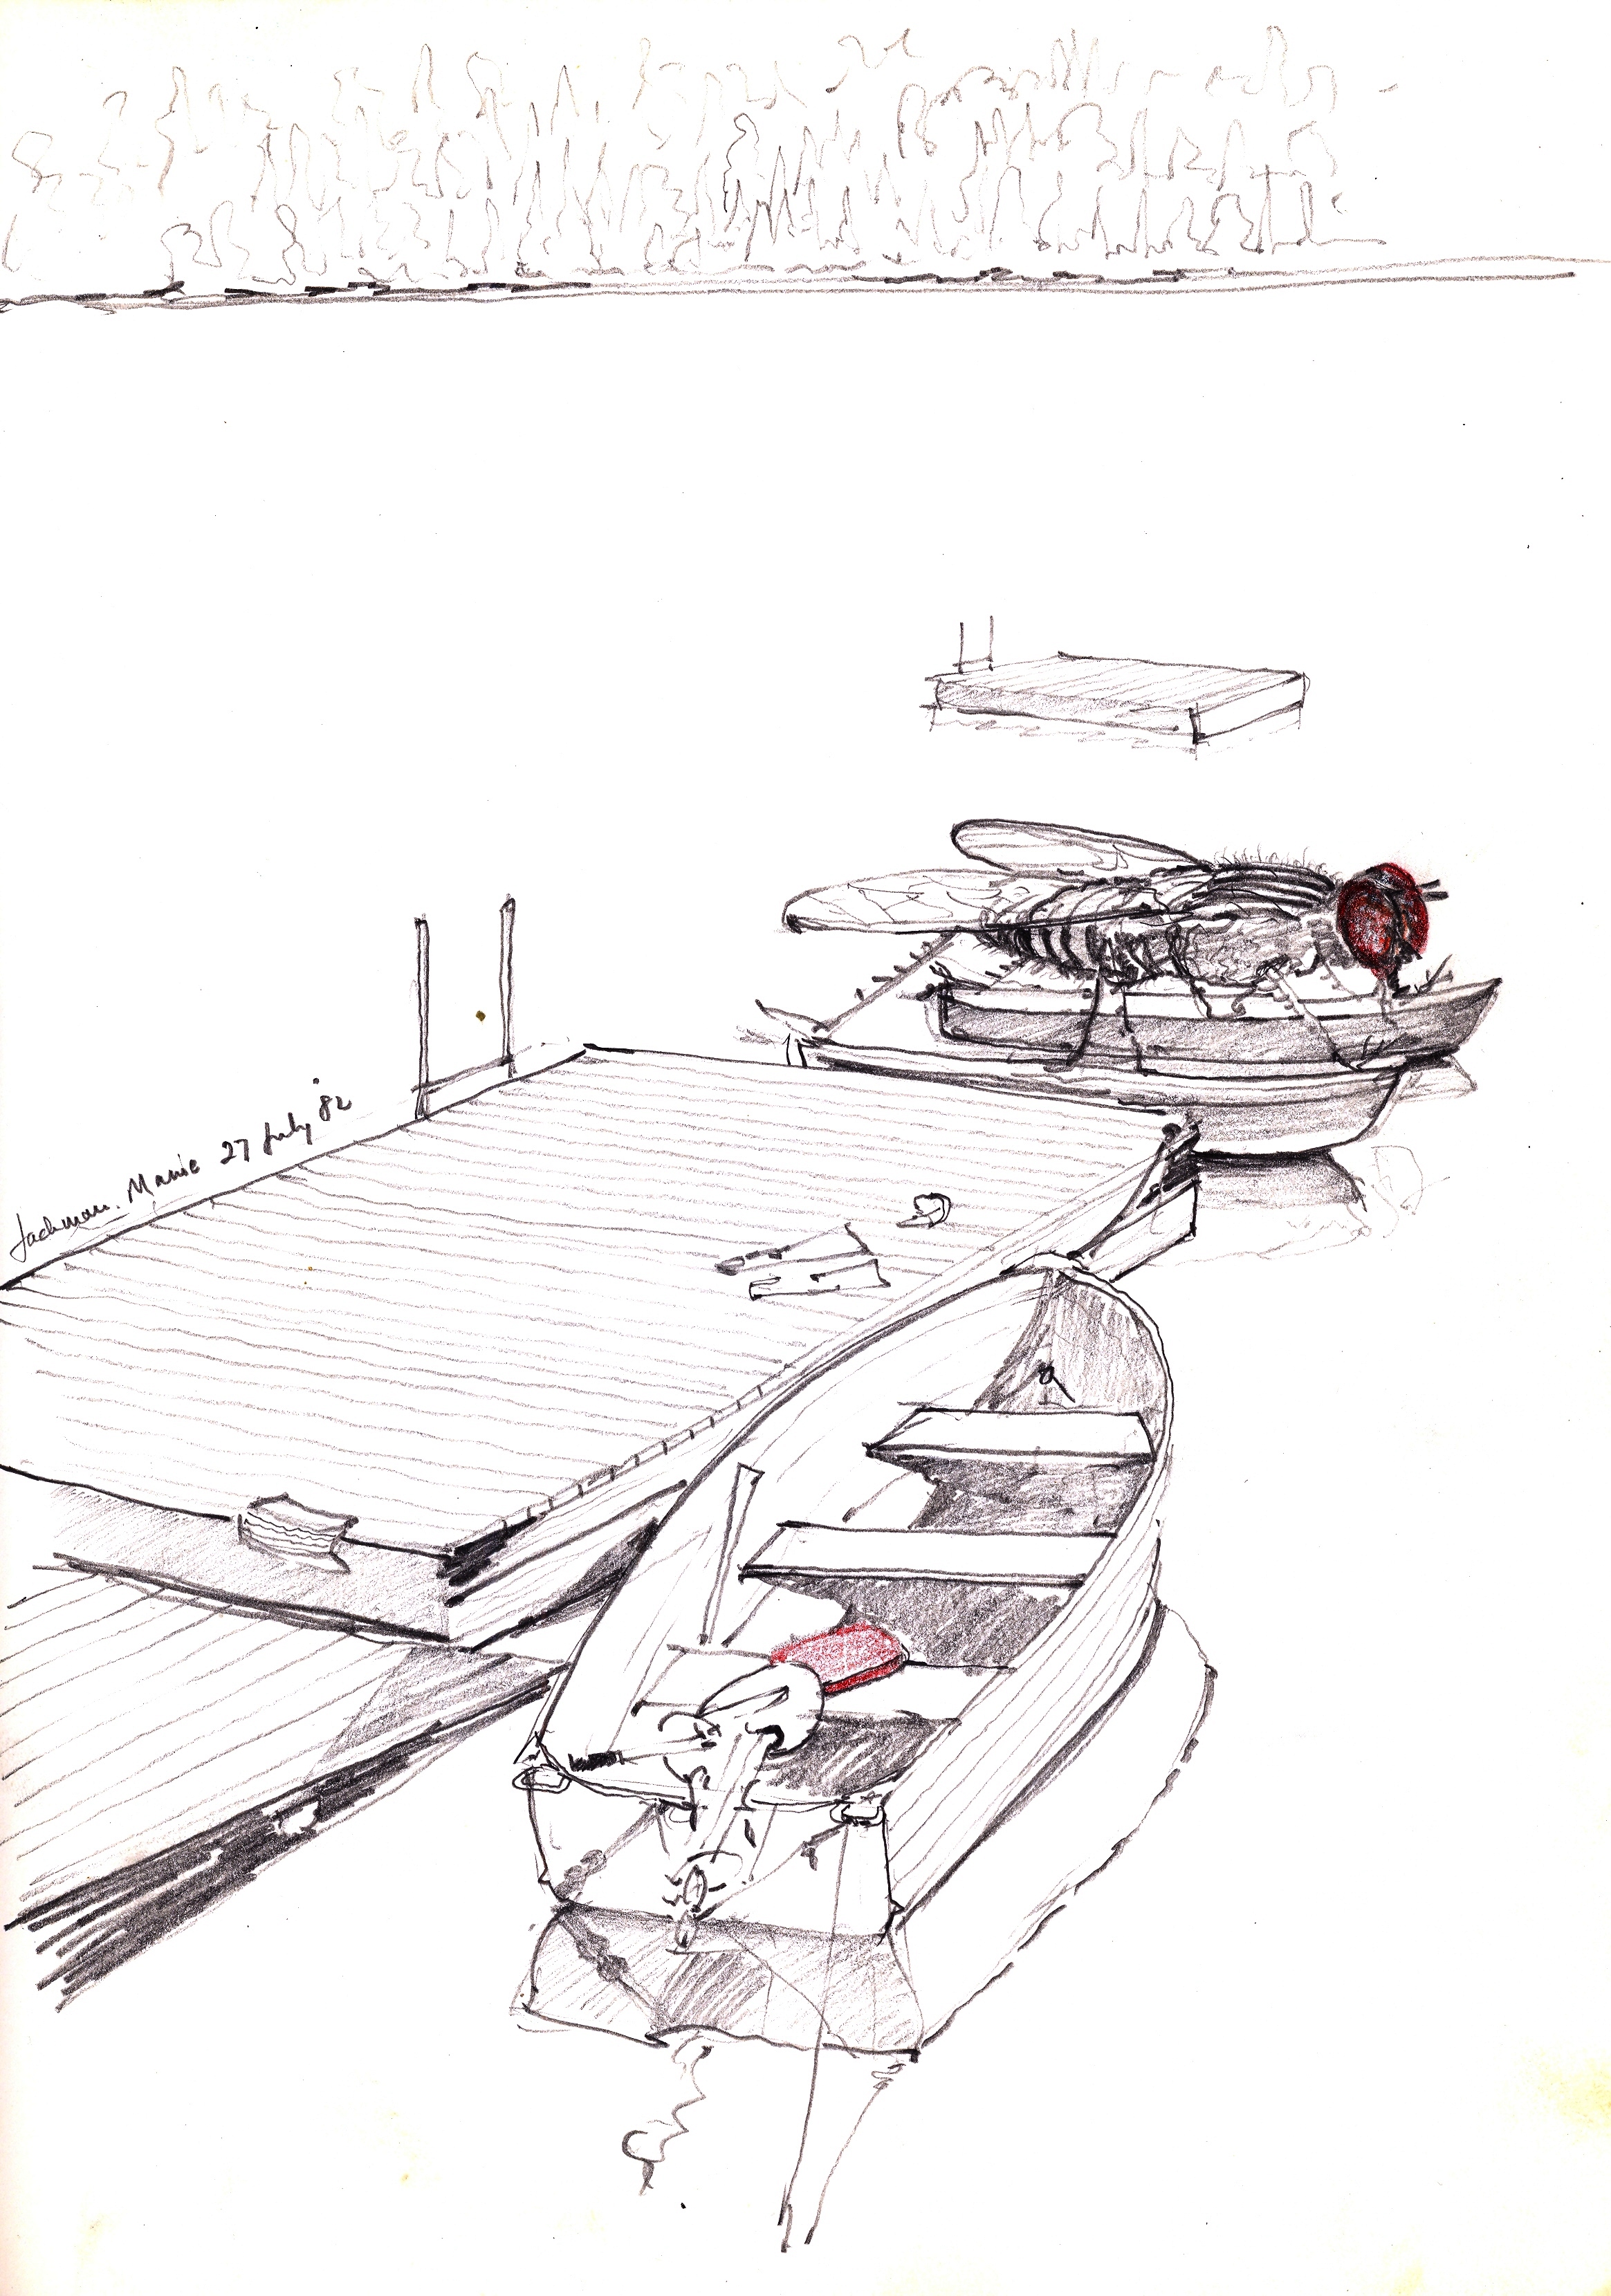 Jackman. Maine 27 July '82